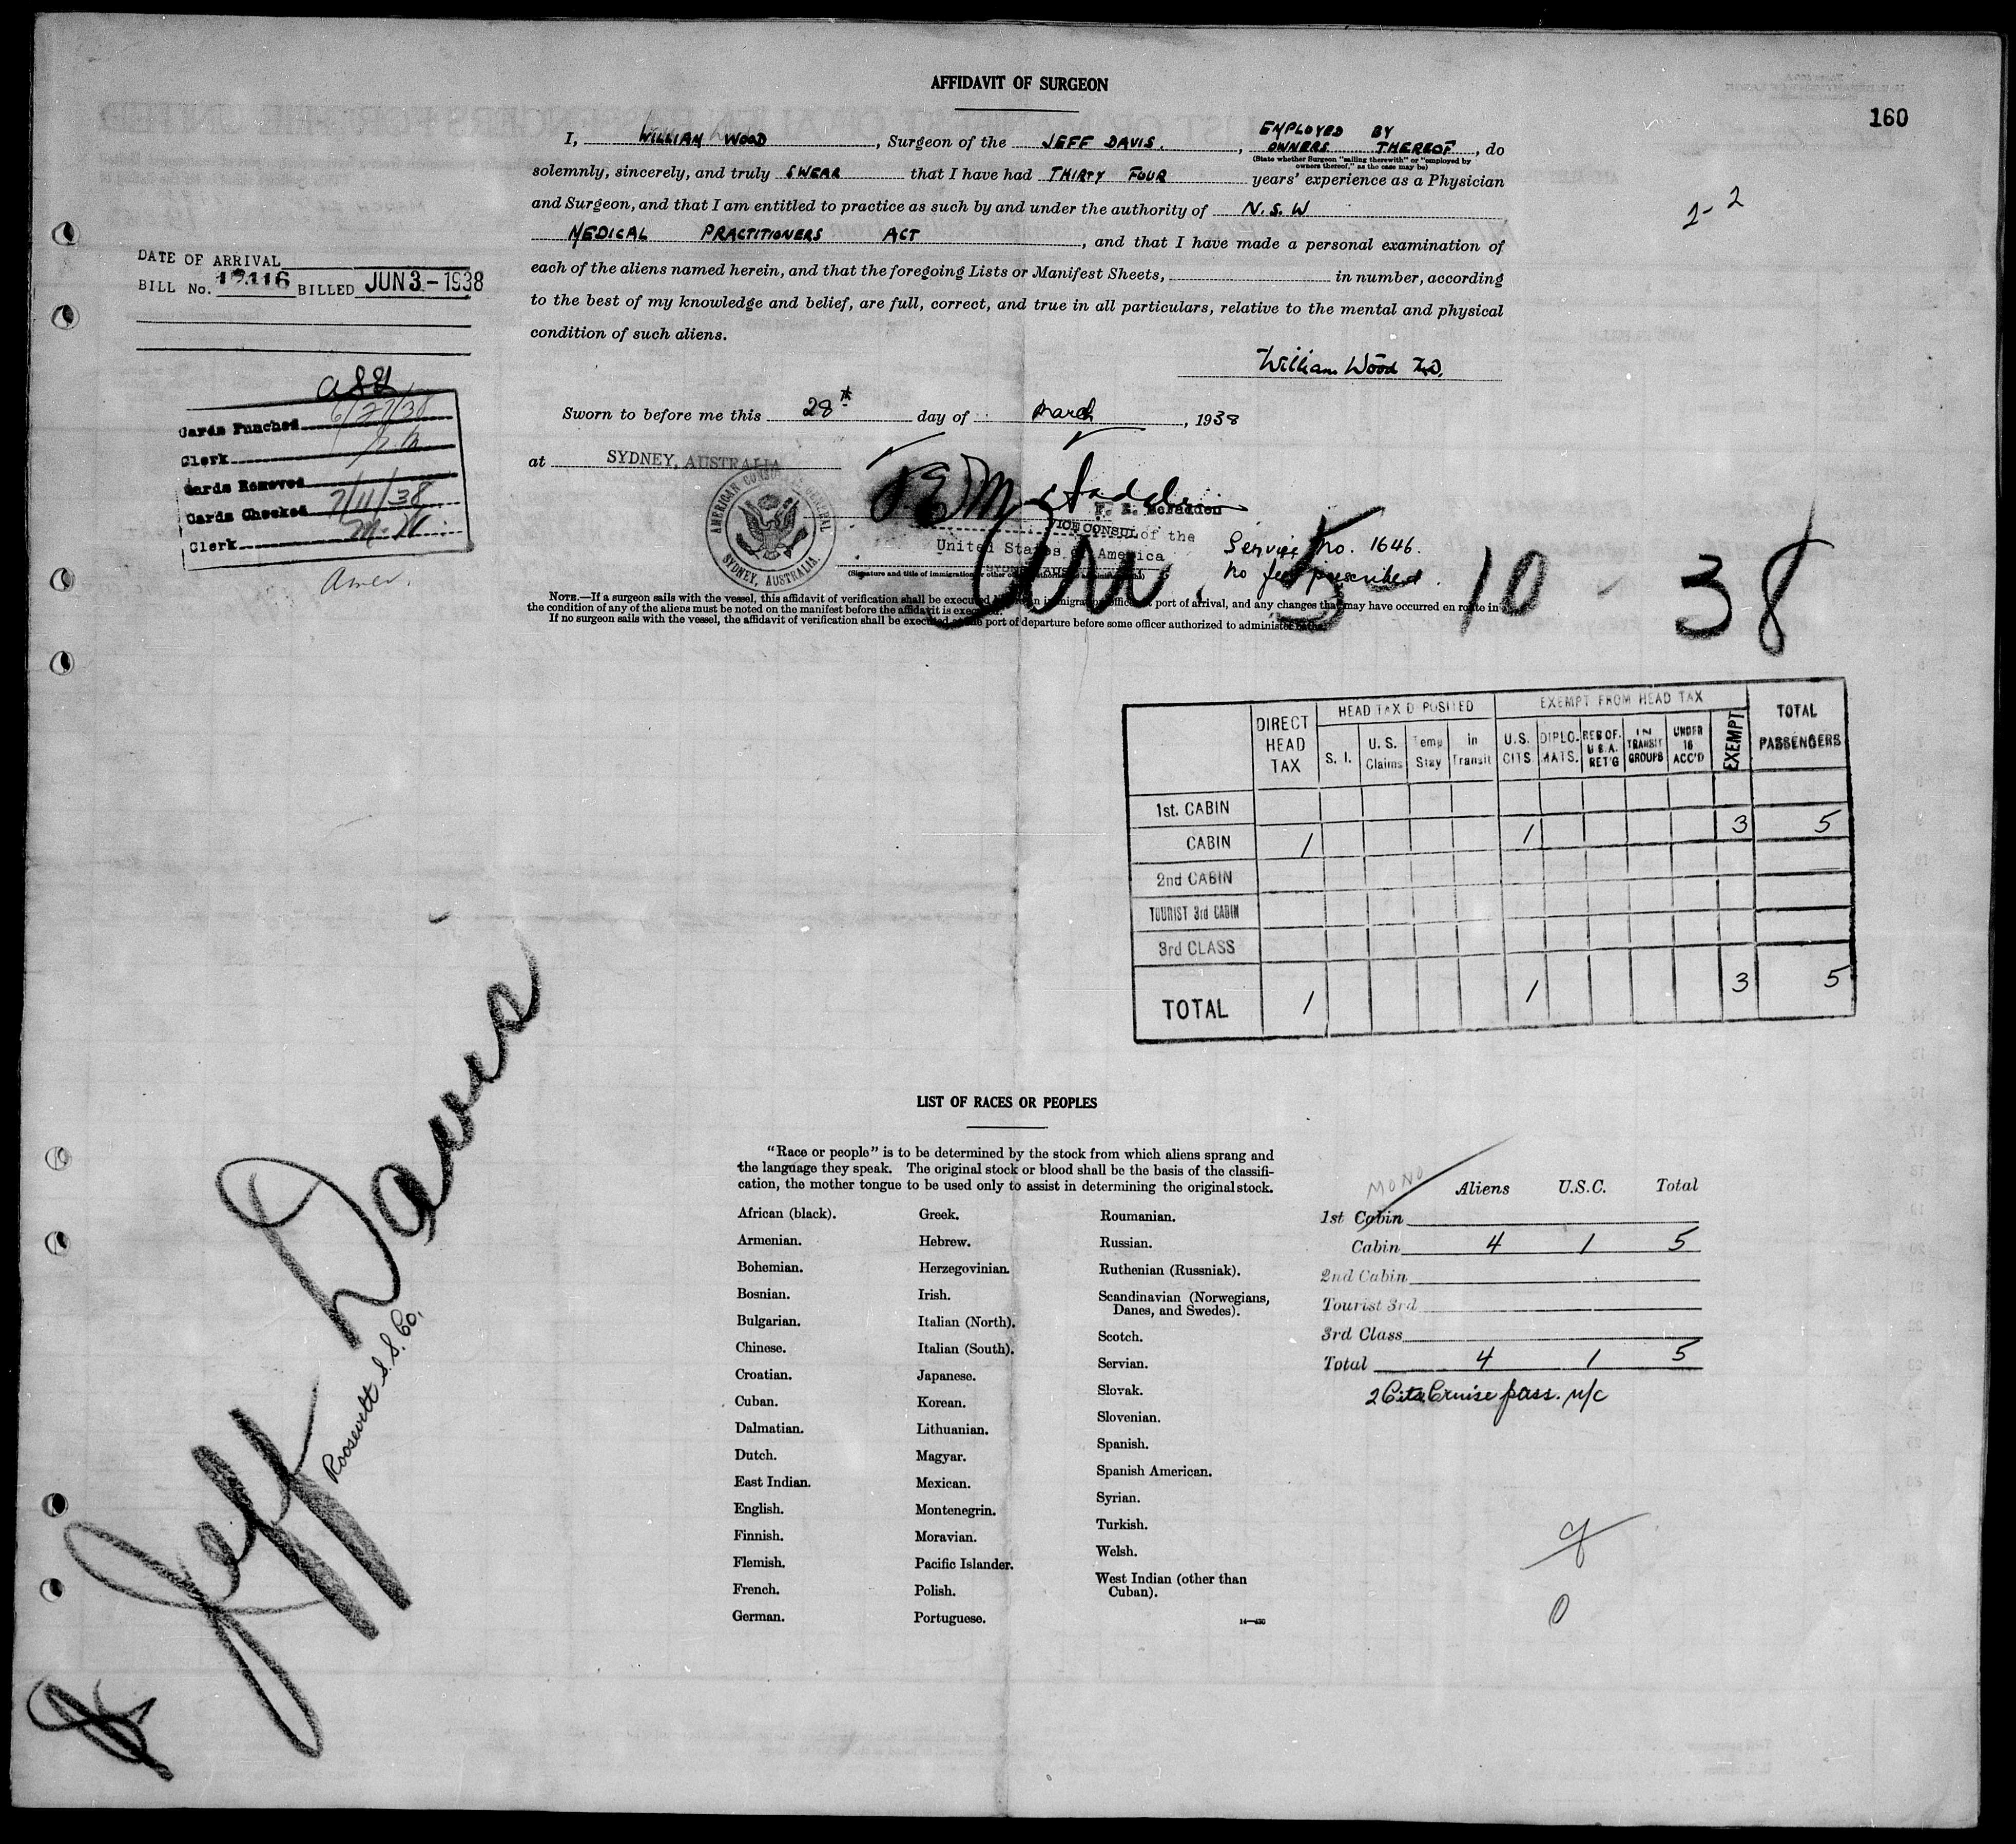 AFFIDAVIT OF SURGEON
160
I, WILLIAM WOOD, Surgeon of the JEFF DAVIS., EMPLOYED BY OWNERS THEREOF, do
(State whether Surgeon "sailing therewith" or "employed by
owners thereof," as the case may be)
solemnly, sincerely, and truly SWEAR that I have had THIRTY FOUR years' experience as a Physician
and Surgeon, and that I am entitled to practice as such by and under the authority of N.S.W
MEDICAL PRACTITIONERS ACT, and that I have made a personal examination of
each of the aliens named herein, and that the foregoing Lists or Manifest Sheets, in number, according
to the best of my knowledge and belief, are full, correct, and true in all particulars, relative to the mental and physical
condition of such aliens.
William Wood M.D.
Sworn to before me this 28th day of March, 1938
at SYDNEY, AUSTRALIA
AMERICAN CONSULATE GENERAL
SYDNEY, AUSTRALIA.
VICE CONSUL of the
United States of America
Service No. 1646.
No fee prescribed.
Arr. 5 - 10 - 38
NOTE.—If a surgeon sails with the vessel, this affidavit of verification shall be executed port of arrival, and any changes that may have occurred en route in
the condition of any of the aliens must be noted on the manifest before the affidavit is executed.
If no surgeon sails with the vessel, the affidavit of verification shall be executed at the port of departure before some officer authorized to administer
1-2
DATE OF ARRIVAL
BILL No. 12116 BILLED JUN 3 - 1938
Cards Punched 6/27/38
Clerk
Cards Removed
Cards Checked 7/11/38
Clerk M.W.
Amer.
DIRECT HEAD TAX
HEAD TAX D POSITED
EXEMPT FROM HEAD TAX
TOTAL PASSENGERS
S. I. U. S. Claims Temp Stay in Transit U.S. CITS DIPLO-MATS. RES OF. U.S.A. RET'G IN TRANSIT GROUPS UNDER 16 ACC'D EXEMPT
1st. CABIN
CABIN 1 1 3 5
2nd CABIN
TOURIST 3rd CABIN
3rd CLASS
TOTAL 1 1 3 5
Jeff Davis
Roosevelt S.S. Co.
LIST OF RACES OR PEOPLES
"Race or people" is to be determined by the stock from which aliens sprang and
the language they speak. The original stock or blood shall be the basis of the classifi-
cation, the mother tongue to be used only to assist in determining the original stock.
African (black).
Armenian.
Bohemian.
Bosnian.
Bulgarian.
Chinese.
Croatian.
Cuban.
Dalmatian.
Dutch.
East Indian.
English.
Finnish.
Flemish.
French.
German.
Greek.
Hebrew.
Herzegovinian.
Irish.
Italian (North).
Italian (South).
Japanese.
Korean.
Lithuanian.
Magyar.
Mexican.
Montenegrin.
Moravian.
Pacific Islander.
Polish.
Portuguese.
Roumanian.
Russian.
Ruthenian (Russniak).
Scandinavian (Norwegians,
Danes, and Swedes).
Scotch.
Servian.
Slovak.
Slovenian.
Spanish.
Spanish American.
Syrian.
Turkish.
Welsh.
West Indian (other than
Cuban).
14—430
MONO
Aliens U.S.C. Total
1st Cabin
Cabin 4 1 5
2nd Cabin
Tourist 3rd
3rd Class
Total 4 1 5
2 Cits Cruise pass. n/c
0